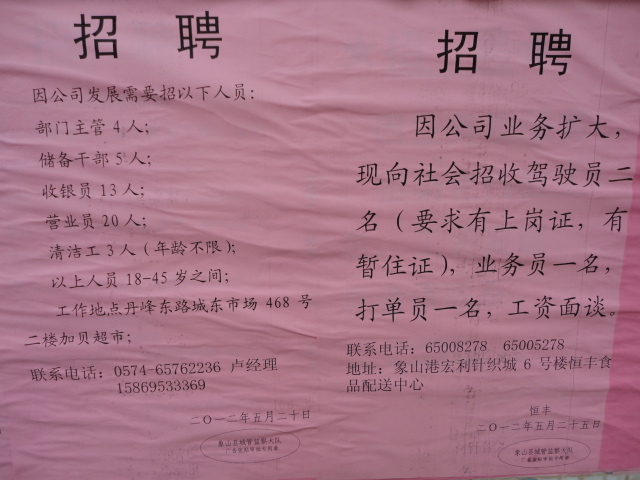 招 聘
因公司发展需要招以下人员:
部门主管4人;
储备干部5人;
收银员13人;
营业员20人;
清洁工3人（年龄不限);
以上人员18-45岁之间;
工作地点丹峰东路城东市场468号
二楼加贝超市;
联系电话: 0574-65762236 卢经理
15869533369
二〇一二年五月二十日
象山县城管监察大队
招 聘
因公司业务扩大,
现向社会招收驾驶员二
名（要求有上岗证, 有
暂住证), 业务员一名,
打单员一名, 工资面谈。
联系电话: 65008278 65005278
地址: 象山港宏利针织城 6 号楼恒丰食
品配送中心
恒丰
二〇一二年五月二十五日
象山县城管监察大队